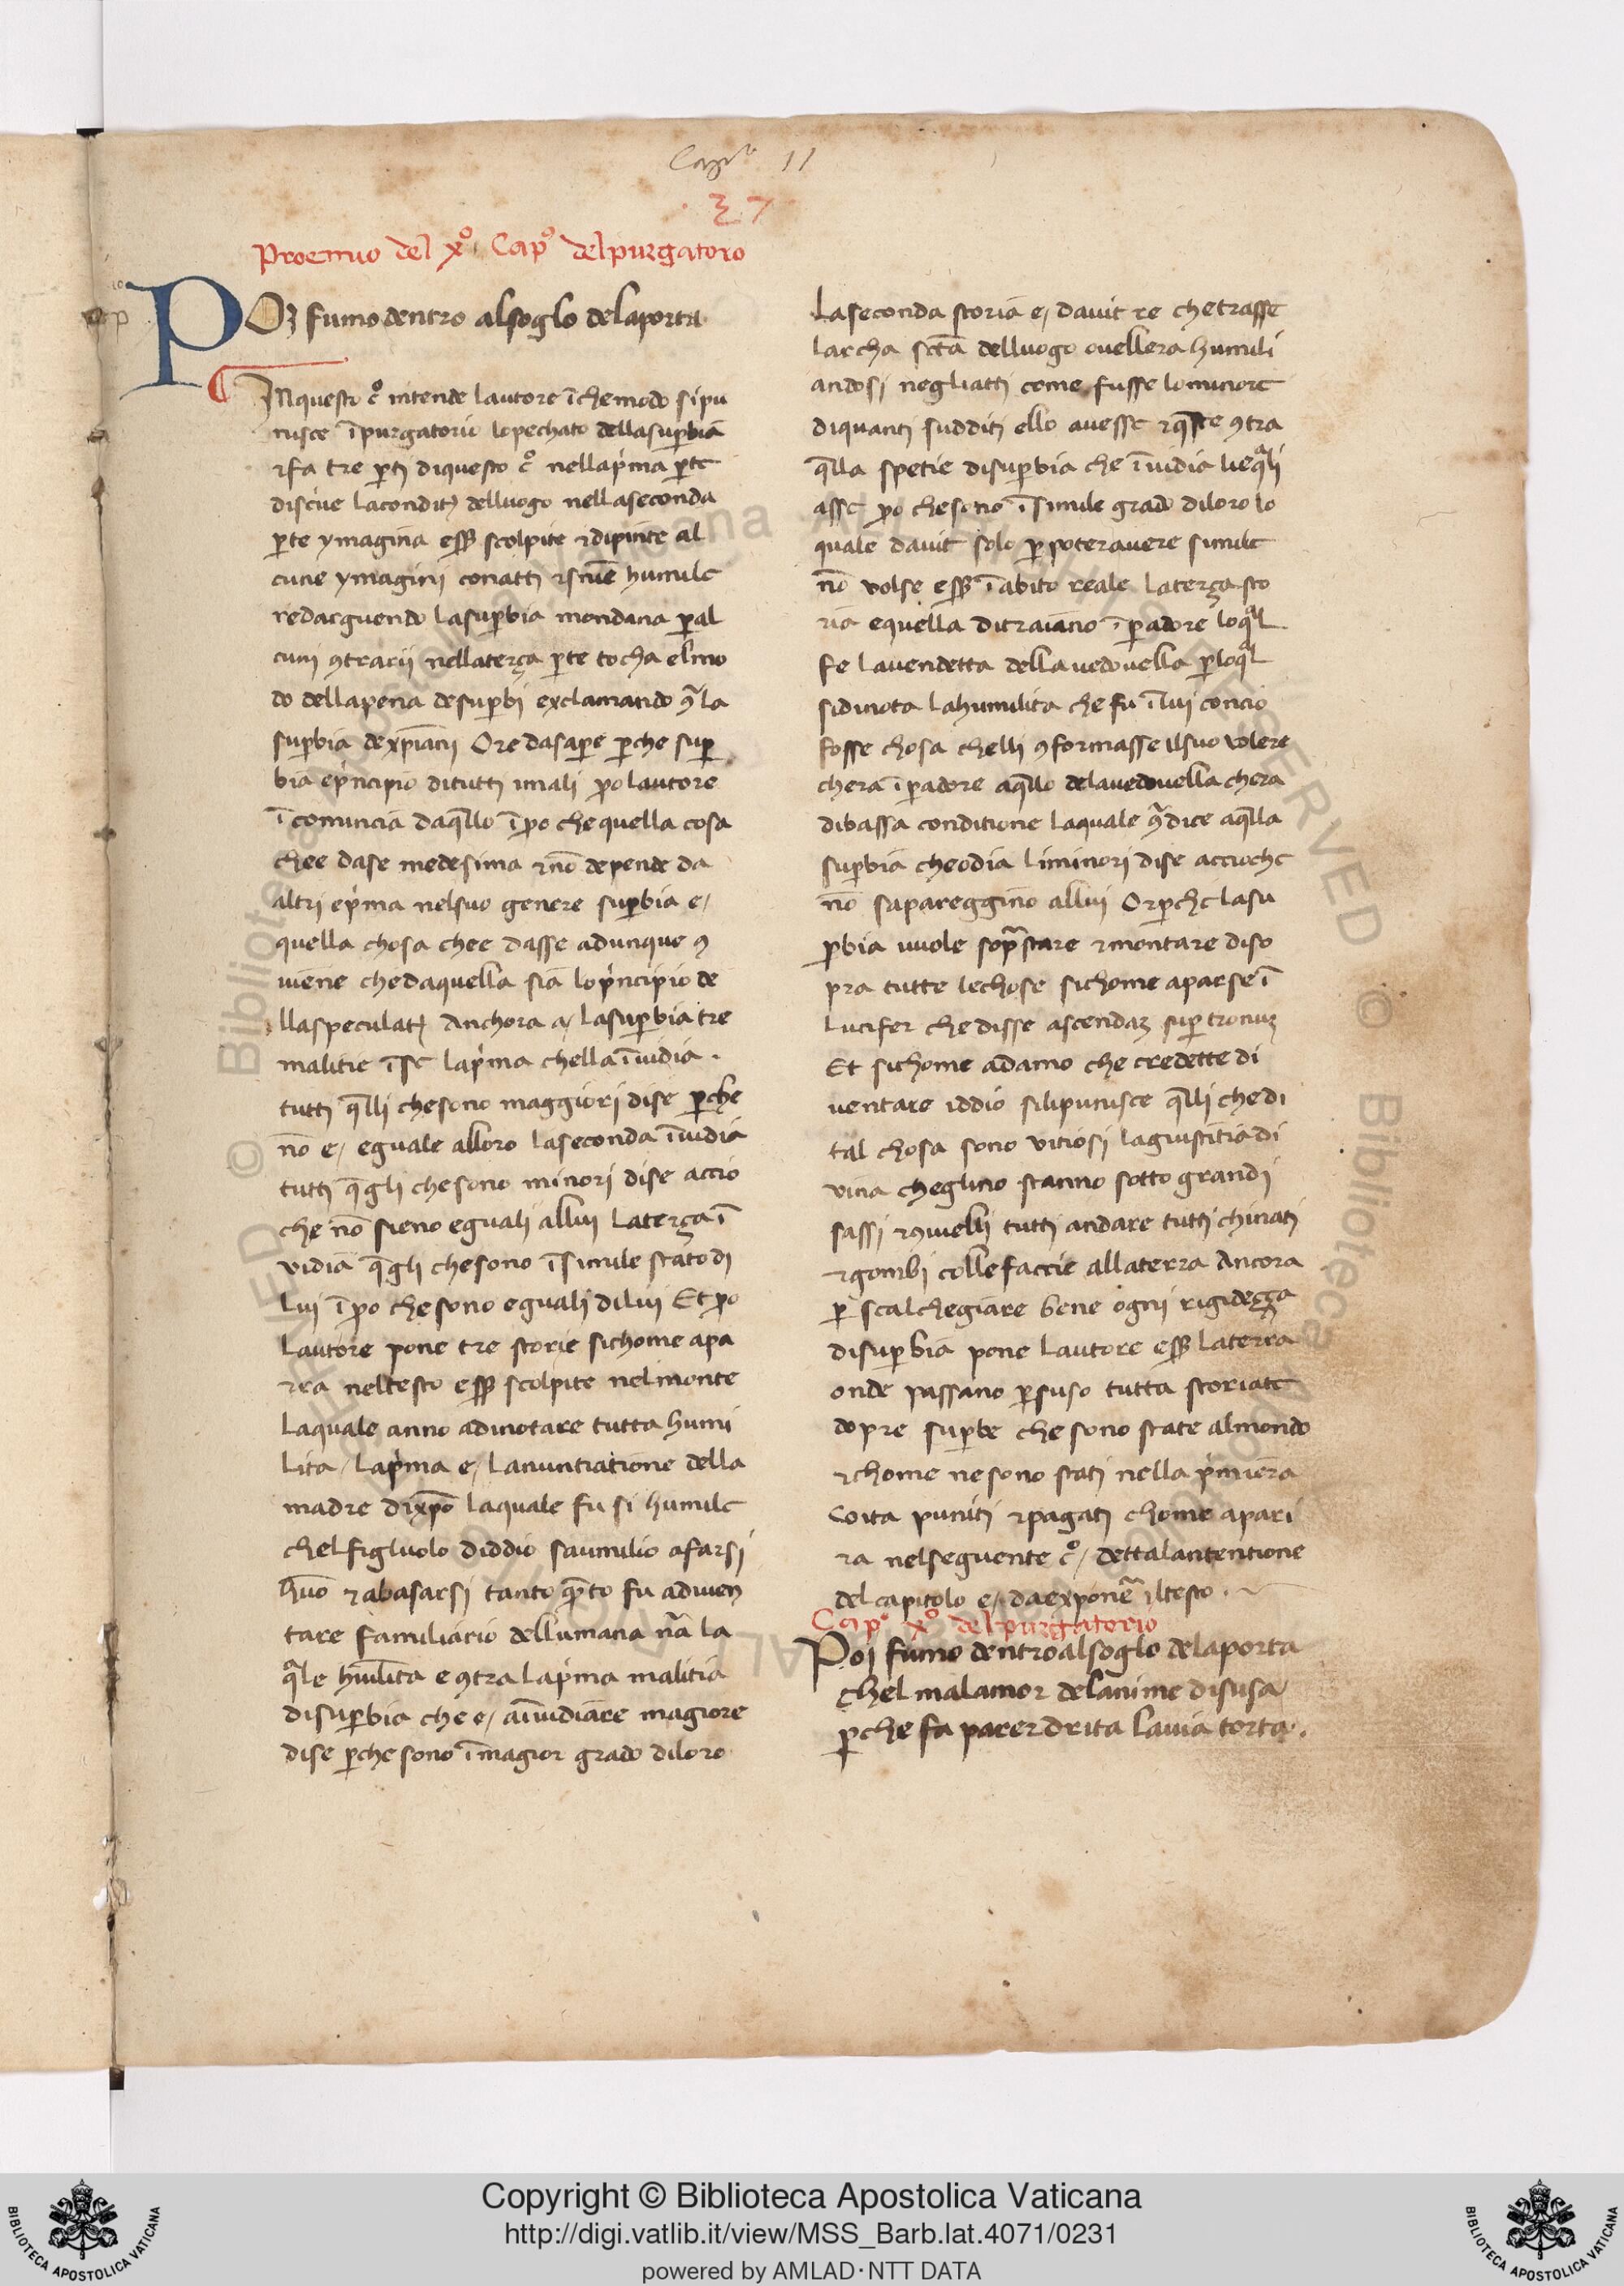 Cap° 11
37
Proemio del x° Cap° del purgatoro
POi fumo dentro al soglo de la porta
INquesto c° intende lautore ī che modo si pu
nisce ī purgatorio lo pechato della suꝑbia
⁊ fa tre ꝑti di questo c° nella pͥma ꝑte
discͥue la condit⁊ delluogo nella seconda
ꝑte ymagina esse͞r scolpite ⁊ dipinte al
cune ymagini con atti
redarguendo la suꝑbia mondana ꝑ al
cuni ꝯtrarii nella terça ꝑte tocha el mo
do della pena de suꝑbi exclamando ꝯͣ la
suꝑbia de xp̄iani Ore da saꝑe ꝑche suꝑ
bia e pͥncipio di tutti i mali ꝑo lautore
ī comincia da q̄llo ī ꝑo che quella cosa
che e da se medesima ⁊ nō depende da
altri e pͥma nel suo genere suꝑbia e/
quella chosa che e dasse adunque ꝯ
viene che da quella sia lo pͥncipio de
lla speculat⁊ Anchora a/ la suꝑbia tre
malitie ī se la pͥma chella ī uidia ·
tutti q̄lli che sono maggiori di se ꝑche
nō e/ eguale alloro la seconda ī uidia
tutti q̄gli che sono minori di se accio
che nō sieno eguali allui La terça ī
vidia q̄gli che sono ī simile stato di
lui ī ꝑo che sono eguali di lui Et ꝑo
lautore pone tre storie sichome apa
rra nel testo esse͞r scolpite nel monte
la quale anno adinotare tutta humi
lita / la pͥma e/ lanuntiatione della
madre di xp̄o la quale fu si humile
chel figluolo diddio saumilio a farsi
huō ⁊ abasarsi tanto qͣto fu adiven
tare familiario dellumana nͣa la
qͣle humilita e ꝯtra la pͥma malitia
di suꝑbia che e/ a īuidiare magiore
di se ꝑche sono ī magior grado di loro
La seconda storia e/ davit re che trasse
larcha sc̄ta delluogo ovellera humili
andosi negli atti come fusse lo minore
di quanti sudditi ello avesse ⁊ q̄ste ꝯtra
q̄lla spetie di suꝑbia che ī uidia li eqͣli
asse ꝑo che sono ī simile grado di loro lo
quale davit solo ꝑ poter avere simile
nō volse esse͞r ī abito reale La terça sto
ria e quella di traiano ī ꝑadore lo qͣl
fe la vendetta della vedovella ꝑ lo qͣl
si dinota la humilita che fu ī lui concio
fosse chosa chelli ꝯformasse il suo volere
chera ī ꝑadore a q̄llo de la vedovella chera
di bassa conditione la quale ꝯͣdice a q̄lla
suꝑbia che odia li minori di se accioche
nō sapareggino allui Or ꝑche la su
ꝑbia vuole sopͣstare ⁊ montare di so
pra tutte le chose sichome aparse ī
Lucifer che disse ascendaꝫ suꝑ tronuꝫ
Et sichome adamo che credette di
ventare iddio si li punisce q̄lli che di
tal chosa sono vitiosi la giustitia di
vina cheglino stanno sotto grandi
sassi ⁊ ꝯvielli tutti andare tutti chinati
⁊ gombi colle faccie alla terra Ancora
ꝑ scalchegiare bene ogni rigideçça
di suꝑbia pone lautore esse͞r la terra
onde passano ꝑ suso tutta storiate
dopre suꝑbe che sono state al mondo
⁊ chome ne sono stati nella pͥmiera
vita puniti ⁊ pagati chome apari
ra nel seguente c°/ detta la ntentione
del capitolo e/ da exponeͣ il testo ·
Cap° x° del purgatorio
Poi fumo dentro al soglo de la porta
chel mal amor de lanime disusa
ꝑche fa parer drita la via torta .
© Biblioteca Apostolica Vaticana ALL RIGHTS RESERVED
Copyright © Biblioteca Apostolica Vaticana
http://digi.vatlib.it/view/MSS_Barb.lat.4071/0231
powered by AMLAD·NTT DATA
BIBLIOTECA APOSTOLICA VATICANA
BIBLIOTECA APOSTOLICA VATICANA